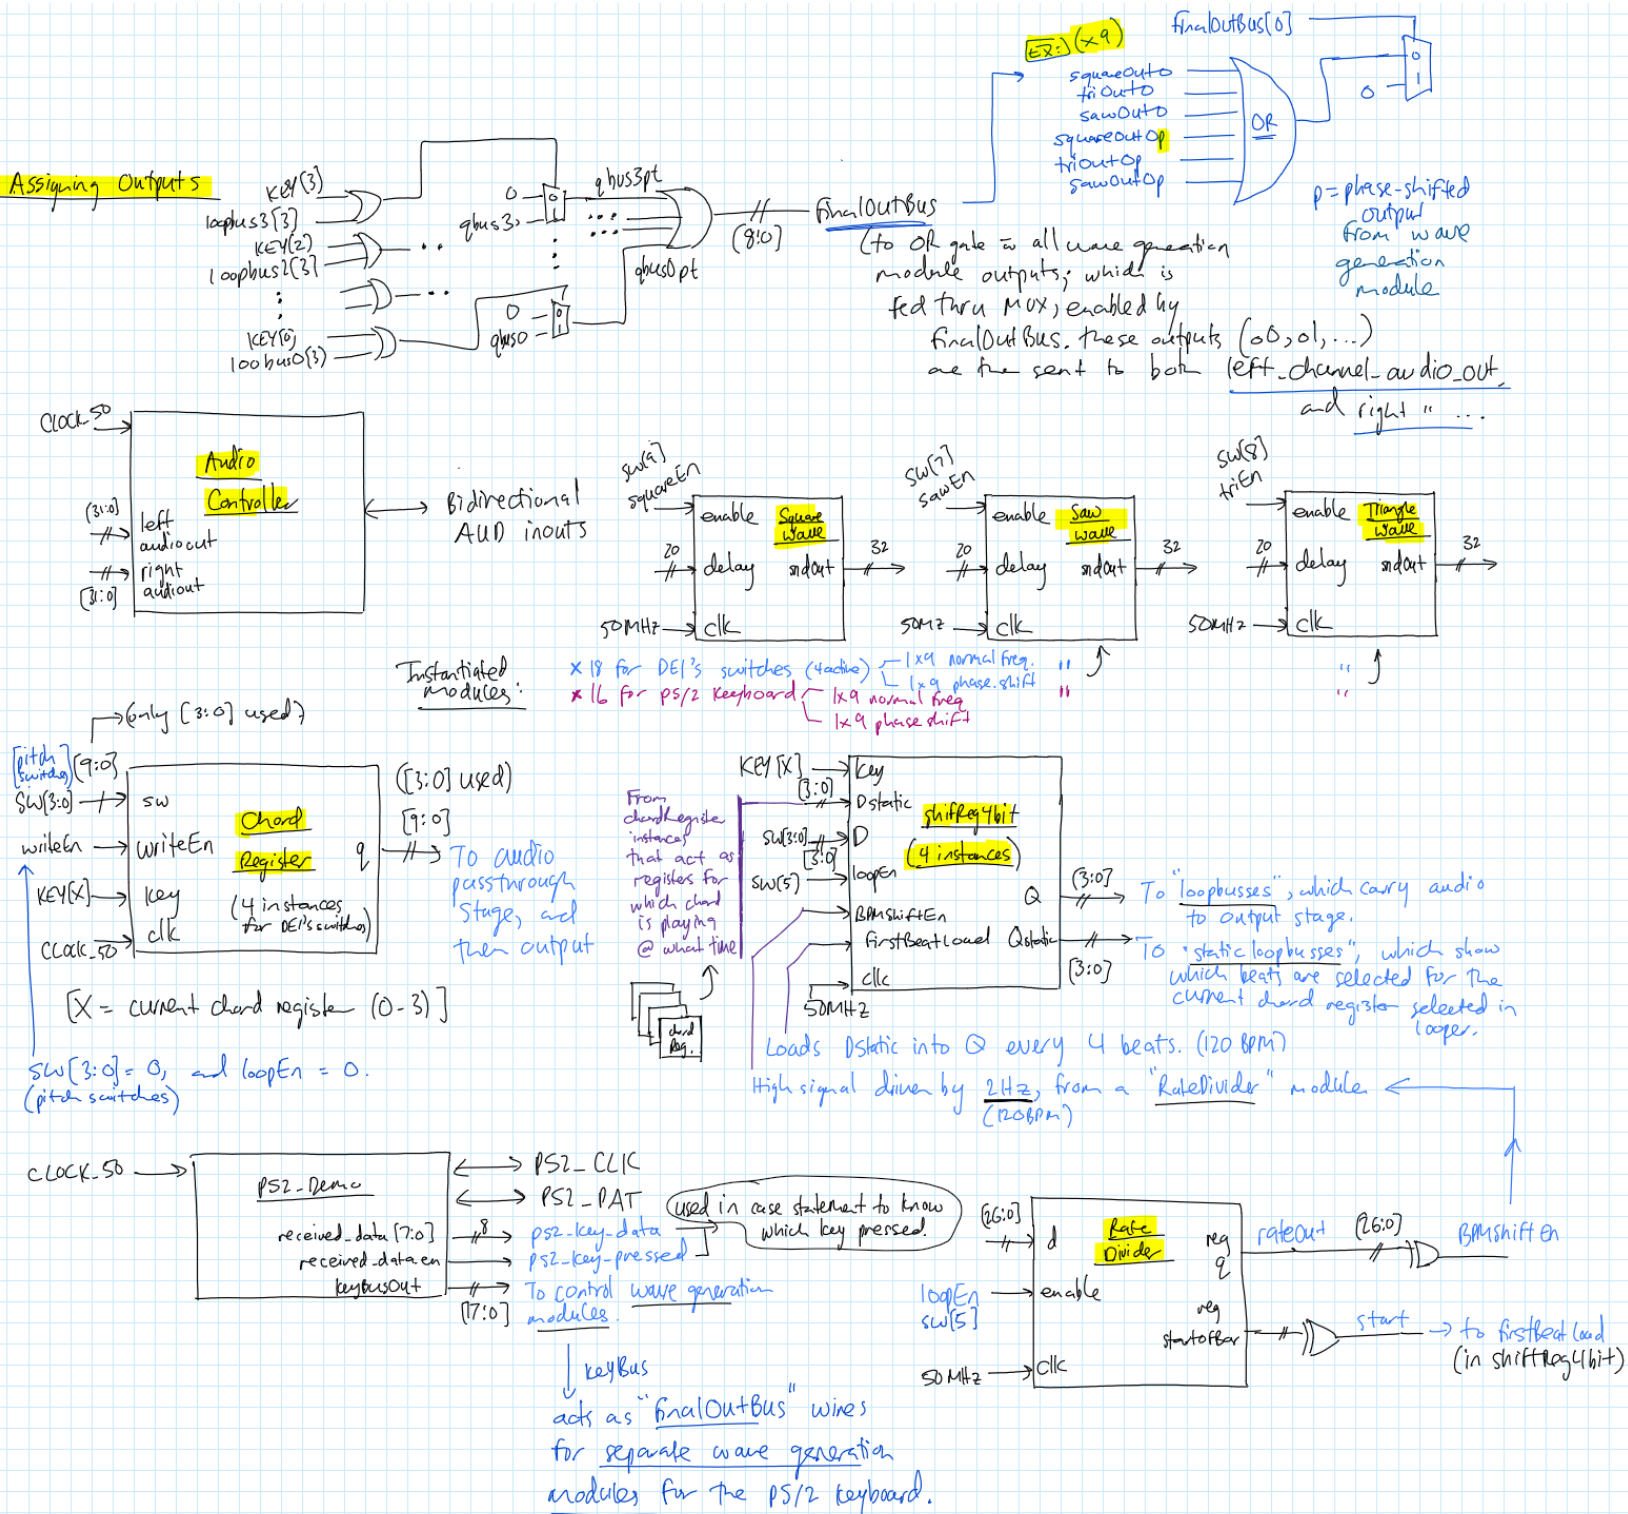 Assigning Outputs
KEY(3)
loopbus3[3]
KEY(2)
loopbus2[3]
KEY(0)
loobus0(3)
0
qbus3
0
1
0
qbus0
0
1
qbus3pt
qbus0pt
(8:0)
finalOutBus
(to OR gate w all wave generation
module outputs; which is
fed thru MUX, enabled by
finalOutBus. these outputs (o0, o1, ...)
are then sent to both left_channel_audio_out
and right " ...
EX:) (x9)
squareOut0
triOut0
sawOut0
squareOut0p
triOut0p
sawOut0p
OR
finalOutBus[0]
0
1
0
p = phase-shifted
output
from wave
generation
module
CLOCK_50
Audio
Controller
(31:0)
left
audioout
right
audioout
[31:0]
Bidirectional
AUD inouts
SW[9]
squareEn
enable
Square
Wave
20
delay
sndOut
32
50MHz
clk
SW[7]
sawEn
enable
Saw
wave
20
delay
sndout
32
50MZ
clk
SW[8]
triEn
enable
Triangle
wave
20
delay
sndout
32
50MHz
clk
Instantiated
modules:
x 18 for DE1's switches (4active)
1x9 normal freq.
1x9 phase.shift
x 16 for PS/2 Keyboard
1x9 normal freq
1x9 phase shift
"
"
"
"
(only [3:0] used)
[pitch
switches]
[9:0]
SW[3:0]
sw
writeEn
writeEn
KEY[X]
key
CLOCK_50
clk
Chord
Register
(4 instances
for DE1's switches)
q
([3:0] used)
[9:0]
To audio
passthrough
stage, and
then output
[X = current chord register (0-3)]
SW[3:0] = 0, and loopEn = 0.
(pitch switches)
From
chordRegister
instances
that act as
registers for
which chord
is playing
@ what time
chord
Reg.
KEY[X]
key
[3:0]
Dstatic
SW[3:0]
D
[3:0]
SW(5)
loopEn
BPMShiftEn
firstBeatLoad
clk
50MHz
shiftReg4bit
(4 instances)
Q
(3:0)
Qstatic
[3:0]
To "loopbusses", which carry audio
to output stage.
To "static loopbusses", which show
which beats are selected for the
current chord register selected in
looper.
Loads Dstatic into Q every 4 beats. (120 BPM)
High signal driven by 2Hz, from a "RateDivider" module
(120BPM)
CLOCK_50
PS2_Demo
received_data[7:0]
received_data_en
keyBusOut
PS2_CLK
PS2_DAT
8
ps2_key_data
ps2_key_pressed
used in case statement to know
which key pressed.
[17:0]
To control wave generation
modules.
keyBus
acts as "finalOutBus" wires
for separate wave generation
modules for the PS/2 keyboard.
[26:0]
d
Rate
Divider
reg
q
loopEn
SW[5]
enable
reg
startofBar
50MHz
clk
rateout
(26:0)
BPMshiftEn
start
to firstBeatLoad
(in shiftReg4bit)